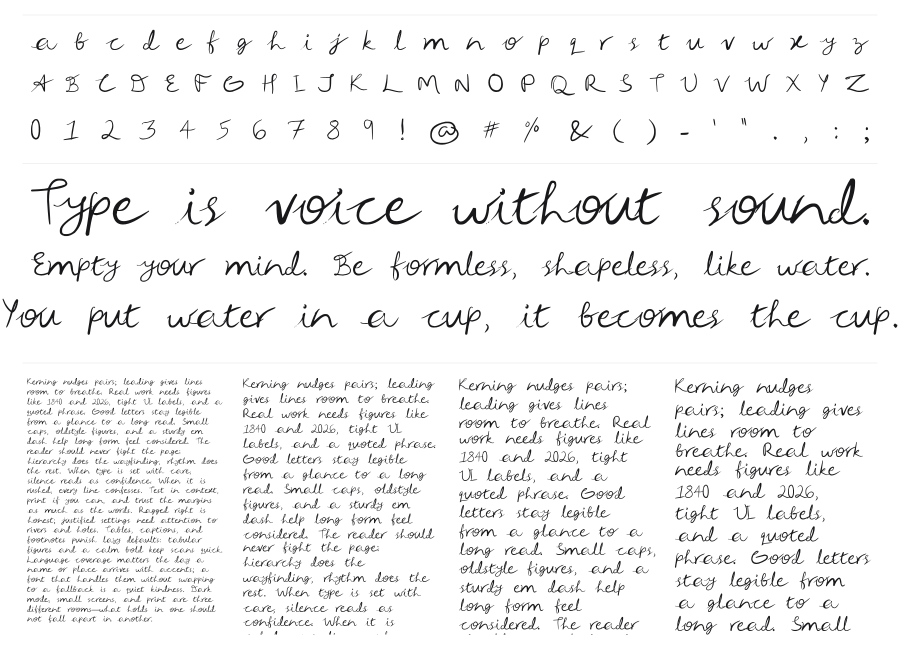 a b c d e f g h i j k l m n o p q r s t u v w x y z
A B C D E F G H I J K L M N O P Q R S T U V W X Y Z
0 1 2 3 4 5 6 7 8 9 ! @ # % & ( ) - ' " . , : ;
Type is voice without sound.
Empty your mind. Be formless, shapeless, like water.
You put water in a cup, it becomes the cup.
Kerning nudges pairs; leading gives lines
room to breathe. Real work needs figures
like 1840 and 2026, tight UL labels, and a
quoted phrase. Good letters stay legible
from a glance to a long read. Small
caps, oldstyle figures, and a sturdy em
dash help long form feel considered. The
reader should never fight the page:
hierarchy does the wayfinding, rhythm does
the rest. When type is set with care,
silence reads as confidence. When it is
rushed, every line confesses. Test in context,
print if you can, and trust the margins
as much as the words. Ragged right is
honest; justified settings need attention to
rivers and holes. Tables, captions, and
footnotes punish lazy defaults: tabular
figures and a calm bold keep scans quick.
Language coverage matters the day a
name or place arrives with accents; a
font that handles them without swapping
to a fallback is a quiet kindness. Dark
mode, small screens, and print are three
different rooms—what holds in one should
not fall apart in another.
Kerning nudges pairs; leading
gives lines room to breathe.
Real work needs figures like
1840 and 2026, tight UL
labels, and a quoted phrase.
Good letters stay legible
from a glance to a long
read. Small caps, oldstyle
figures, and a sturdy em
dash help long form feel
considered. The reader should
never fight the page:
hierarchy does the
wayfinding, rhythm does the
rest. When type is set with
care, silence reads as
confidence. When it is
Kerning nudges pairs;
leading gives lines
room to breathe. Real
work needs figures like
1840 and 2026, tight
UL labels, and a
quoted phrase. Good
letters stay legible
from a glance to a
long read. Small caps,
oldstyle figures, and a
sturdy em dash help
long form feel
considered. The reader
Kerning nudges
pairs; leading gives
lines room to
breathe. Real work
needs figures like
1840 and 2026,
tight UL labels,
and a quoted
phrase. Good letters
stay legible from
a glance to a
long read. Small